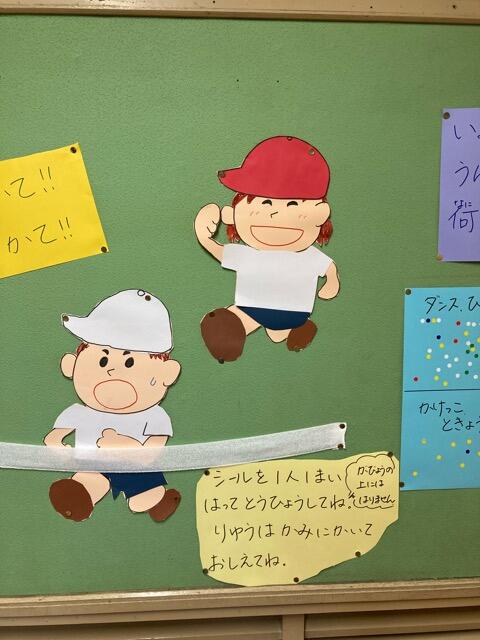 いて!!
かて!!
シールを1人1まい
はってとうひょうしてね。
りゅうはかみにかいて
おしえてね。
がびょうの
上には
はりません
い
う
なに
何
ダンス、ひ
かけっこ
ときょう